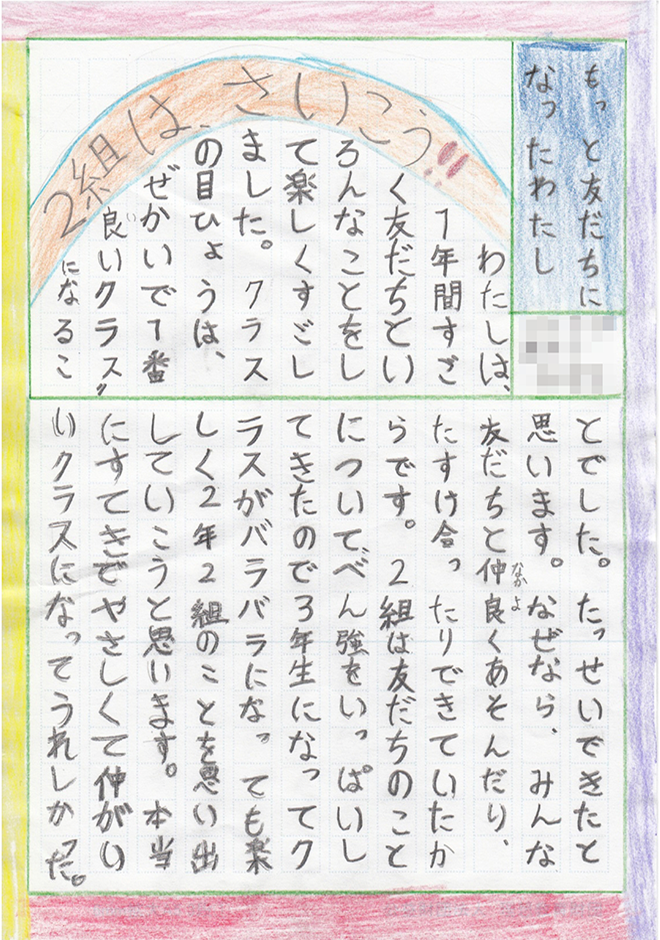 もっと友だちに
なったわたし
2組は、さいこう!!
わたしは、
1年間すご
く友だちとい
ろんなことをし
て楽しくすごし
ました。クラス
の目ひょうは、
ぜかいで1番
良いクラス〃
になるこ
とでした。たっせいできたと
思います。なぜなら、みんな
友だちと仲良くあそんだり、
たすけ合ったりできていたか
らです。2組は友だちのこと
について、べん強をいっぱいし
てきたので3年生になってク
ラスがバラバラになっても楽
しく2年2組のことを思い出
していこうと思います。本当
にすてきでやさしくて仲がい
いクラスになってうれしかった。